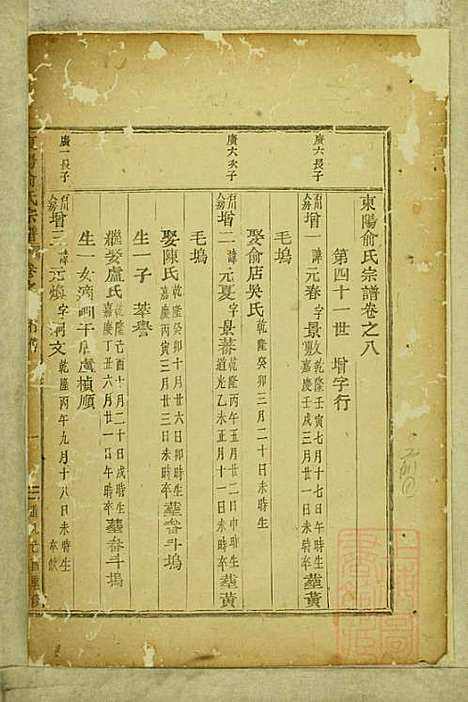 東陽俞氏宗譜卷之八
第四十一世 增字行
廣六長子
增一 諱元春字景敷 乾隆壬寅七月十七日午時生 嘉慶壬戌三月廿一日未時卒 葬黃
毛塢
娶俞店吳氏 乾隆癸卯三月二十日未時生
廣六次子
增二 諱元夏字景蕃 乾隆丙午五月廿二日申時生 道光乙未正月十一日未時卒 葬黃
毛塢
娶陳氏 乾隆癸卯十月廿六日卯時生 嘉慶丙寅三月廿三日未時卒 葬畚斗塢
生一子 萃譽
繼娶盧氏 乾隆己酉十月二十日戌時生 丁丑六月廿一日 時卒 葬畚斗塢
生一女適 盧楨順
廣一長子
增三 諱元煥字 文 乾隆丙午九月十八日未時生
東陽俞氏宗譜 卷之